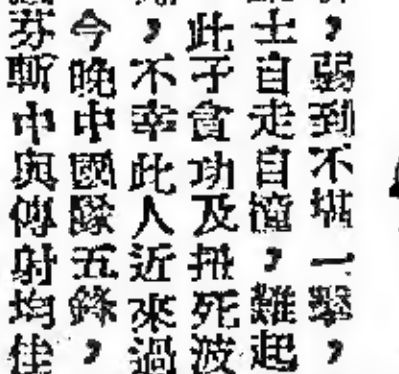 ，弱到不堪一擊，
士自走自撞，難起，
此子貪功及扭死波
，不幸此人近來過
今晚中國隊五鋒，
芬斬中與傳射均佳